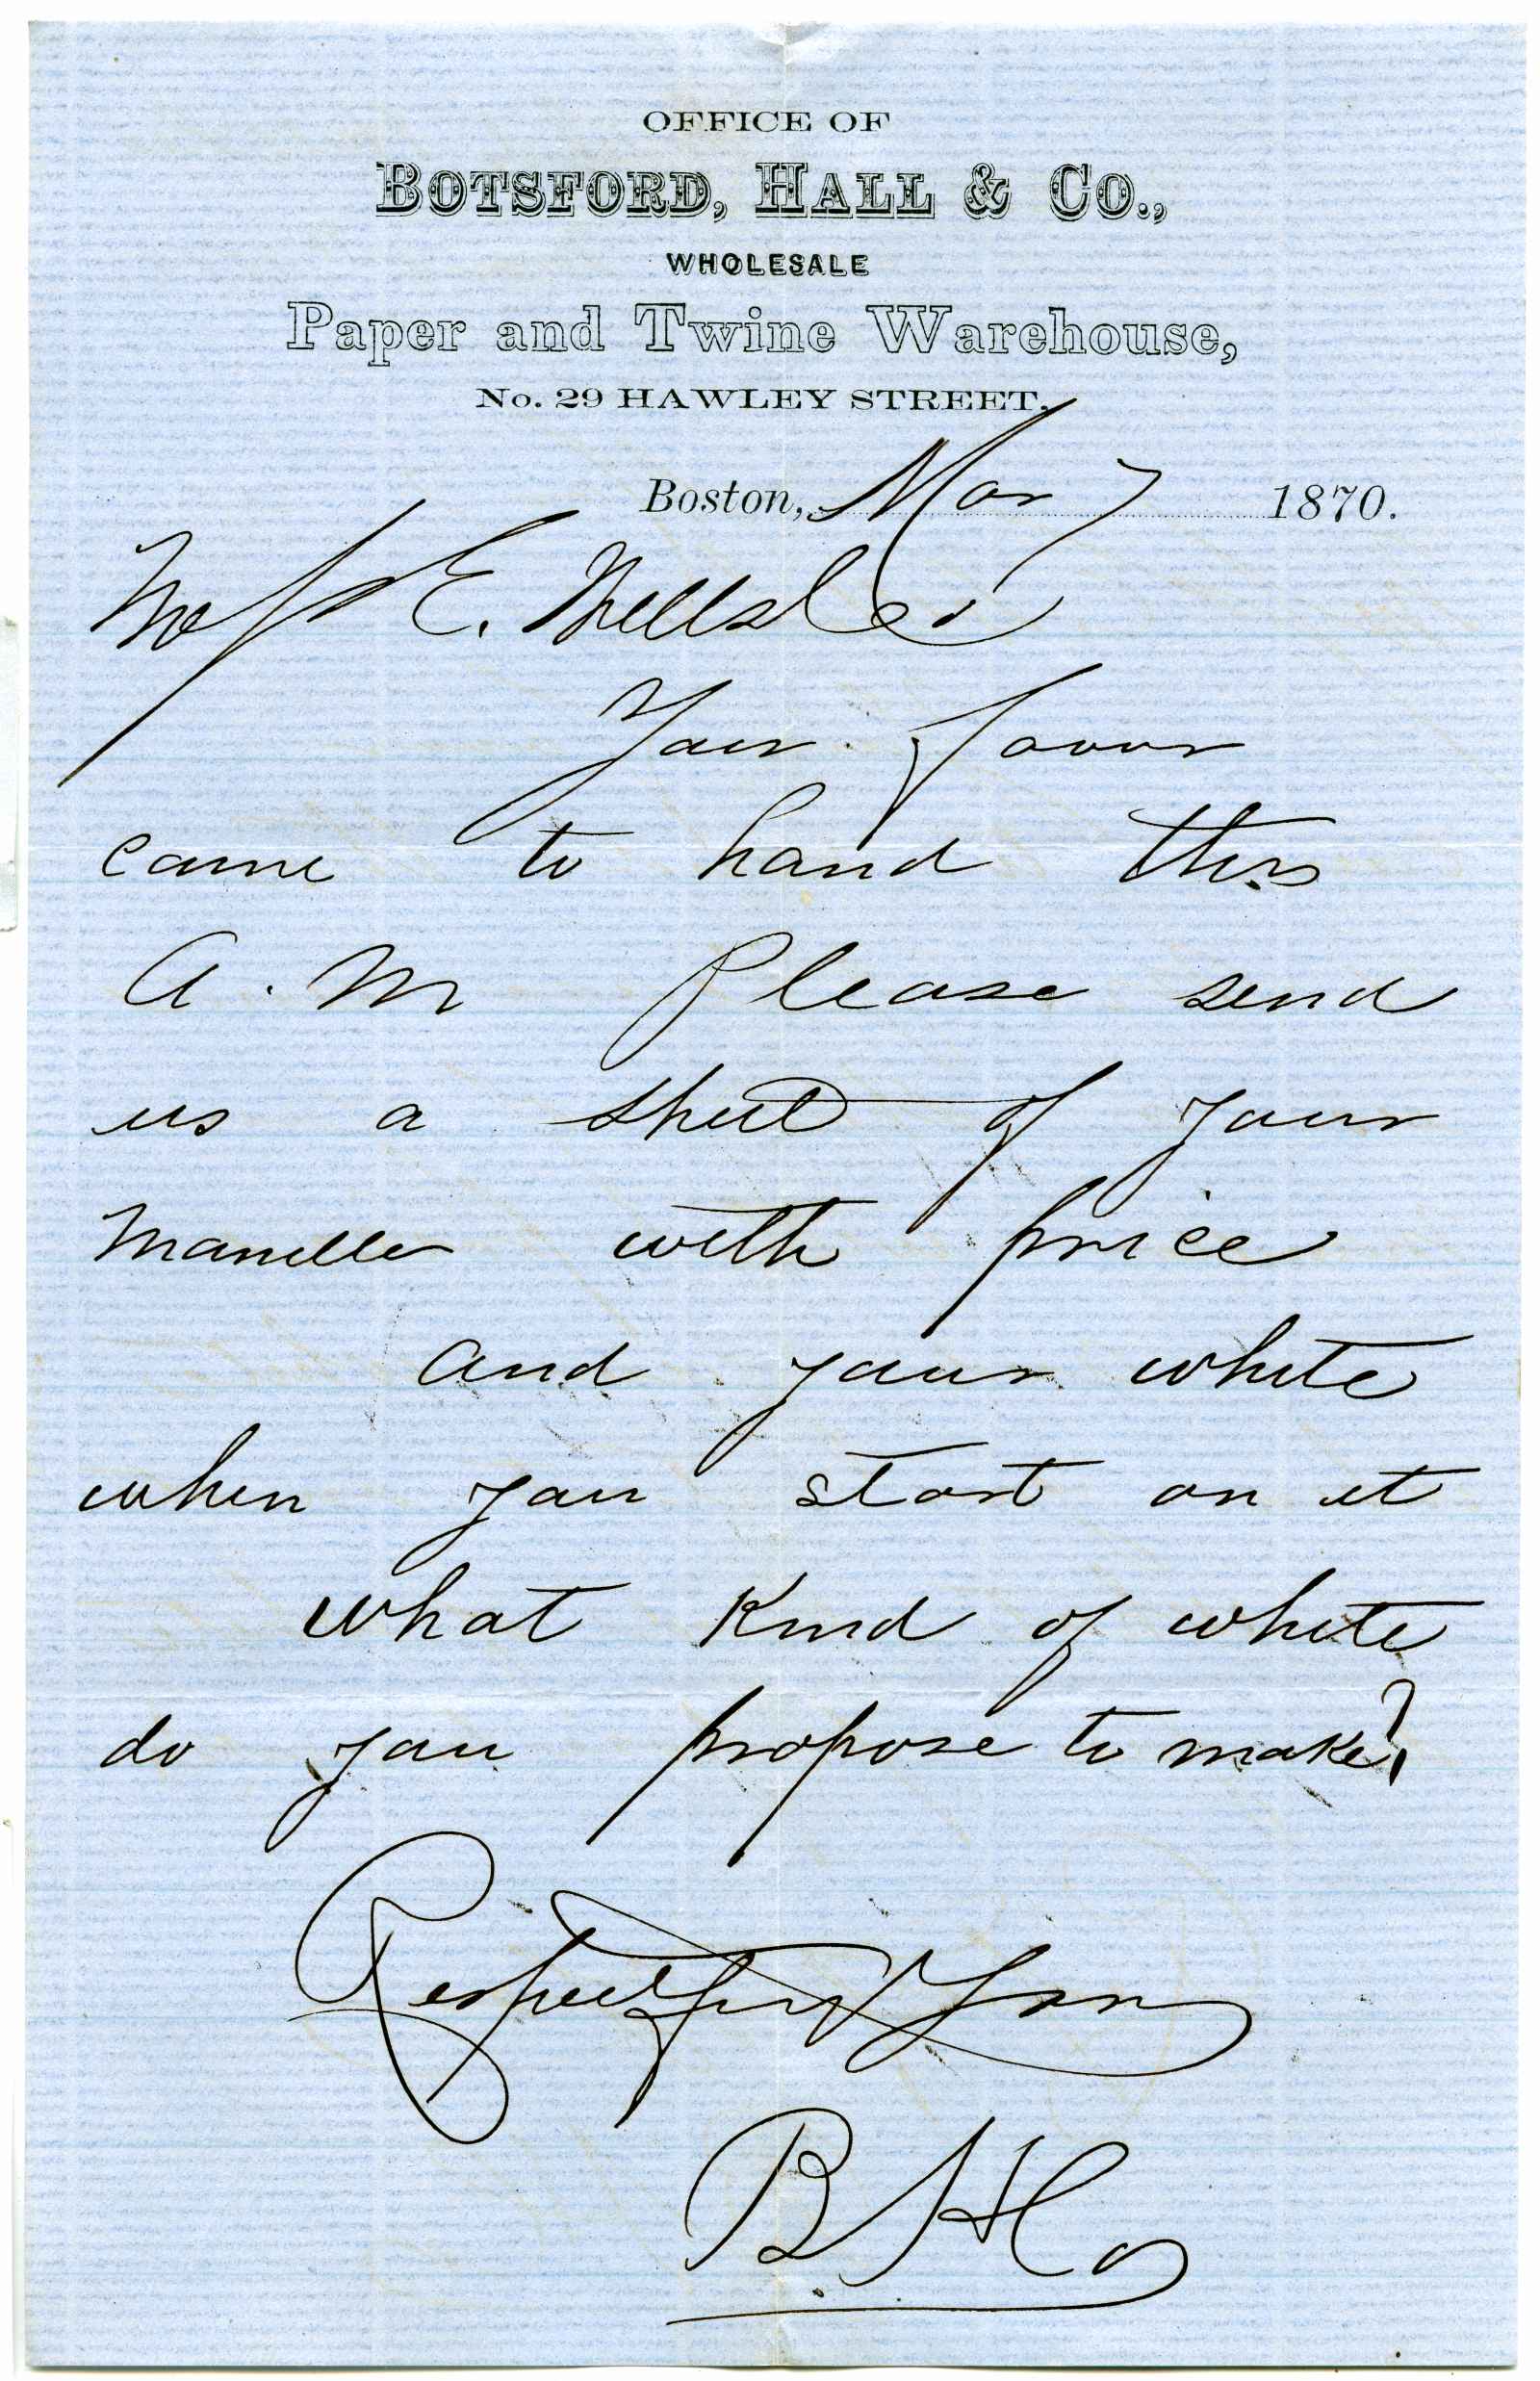 OFFICE OF
BOTSFORD, HALL & CO.,
WHOLESALE
Paper and Twine Warehouse,
No. 29 HAWLEY STREET.
Boston, Mar 7 1870.
E.
Your favor
came to hand this
A. M Please send
us a sheet of your
Manilla with price
and your white
when you start on it
what kind of white
do you propose to make?
Respectfully Yours
B H Co